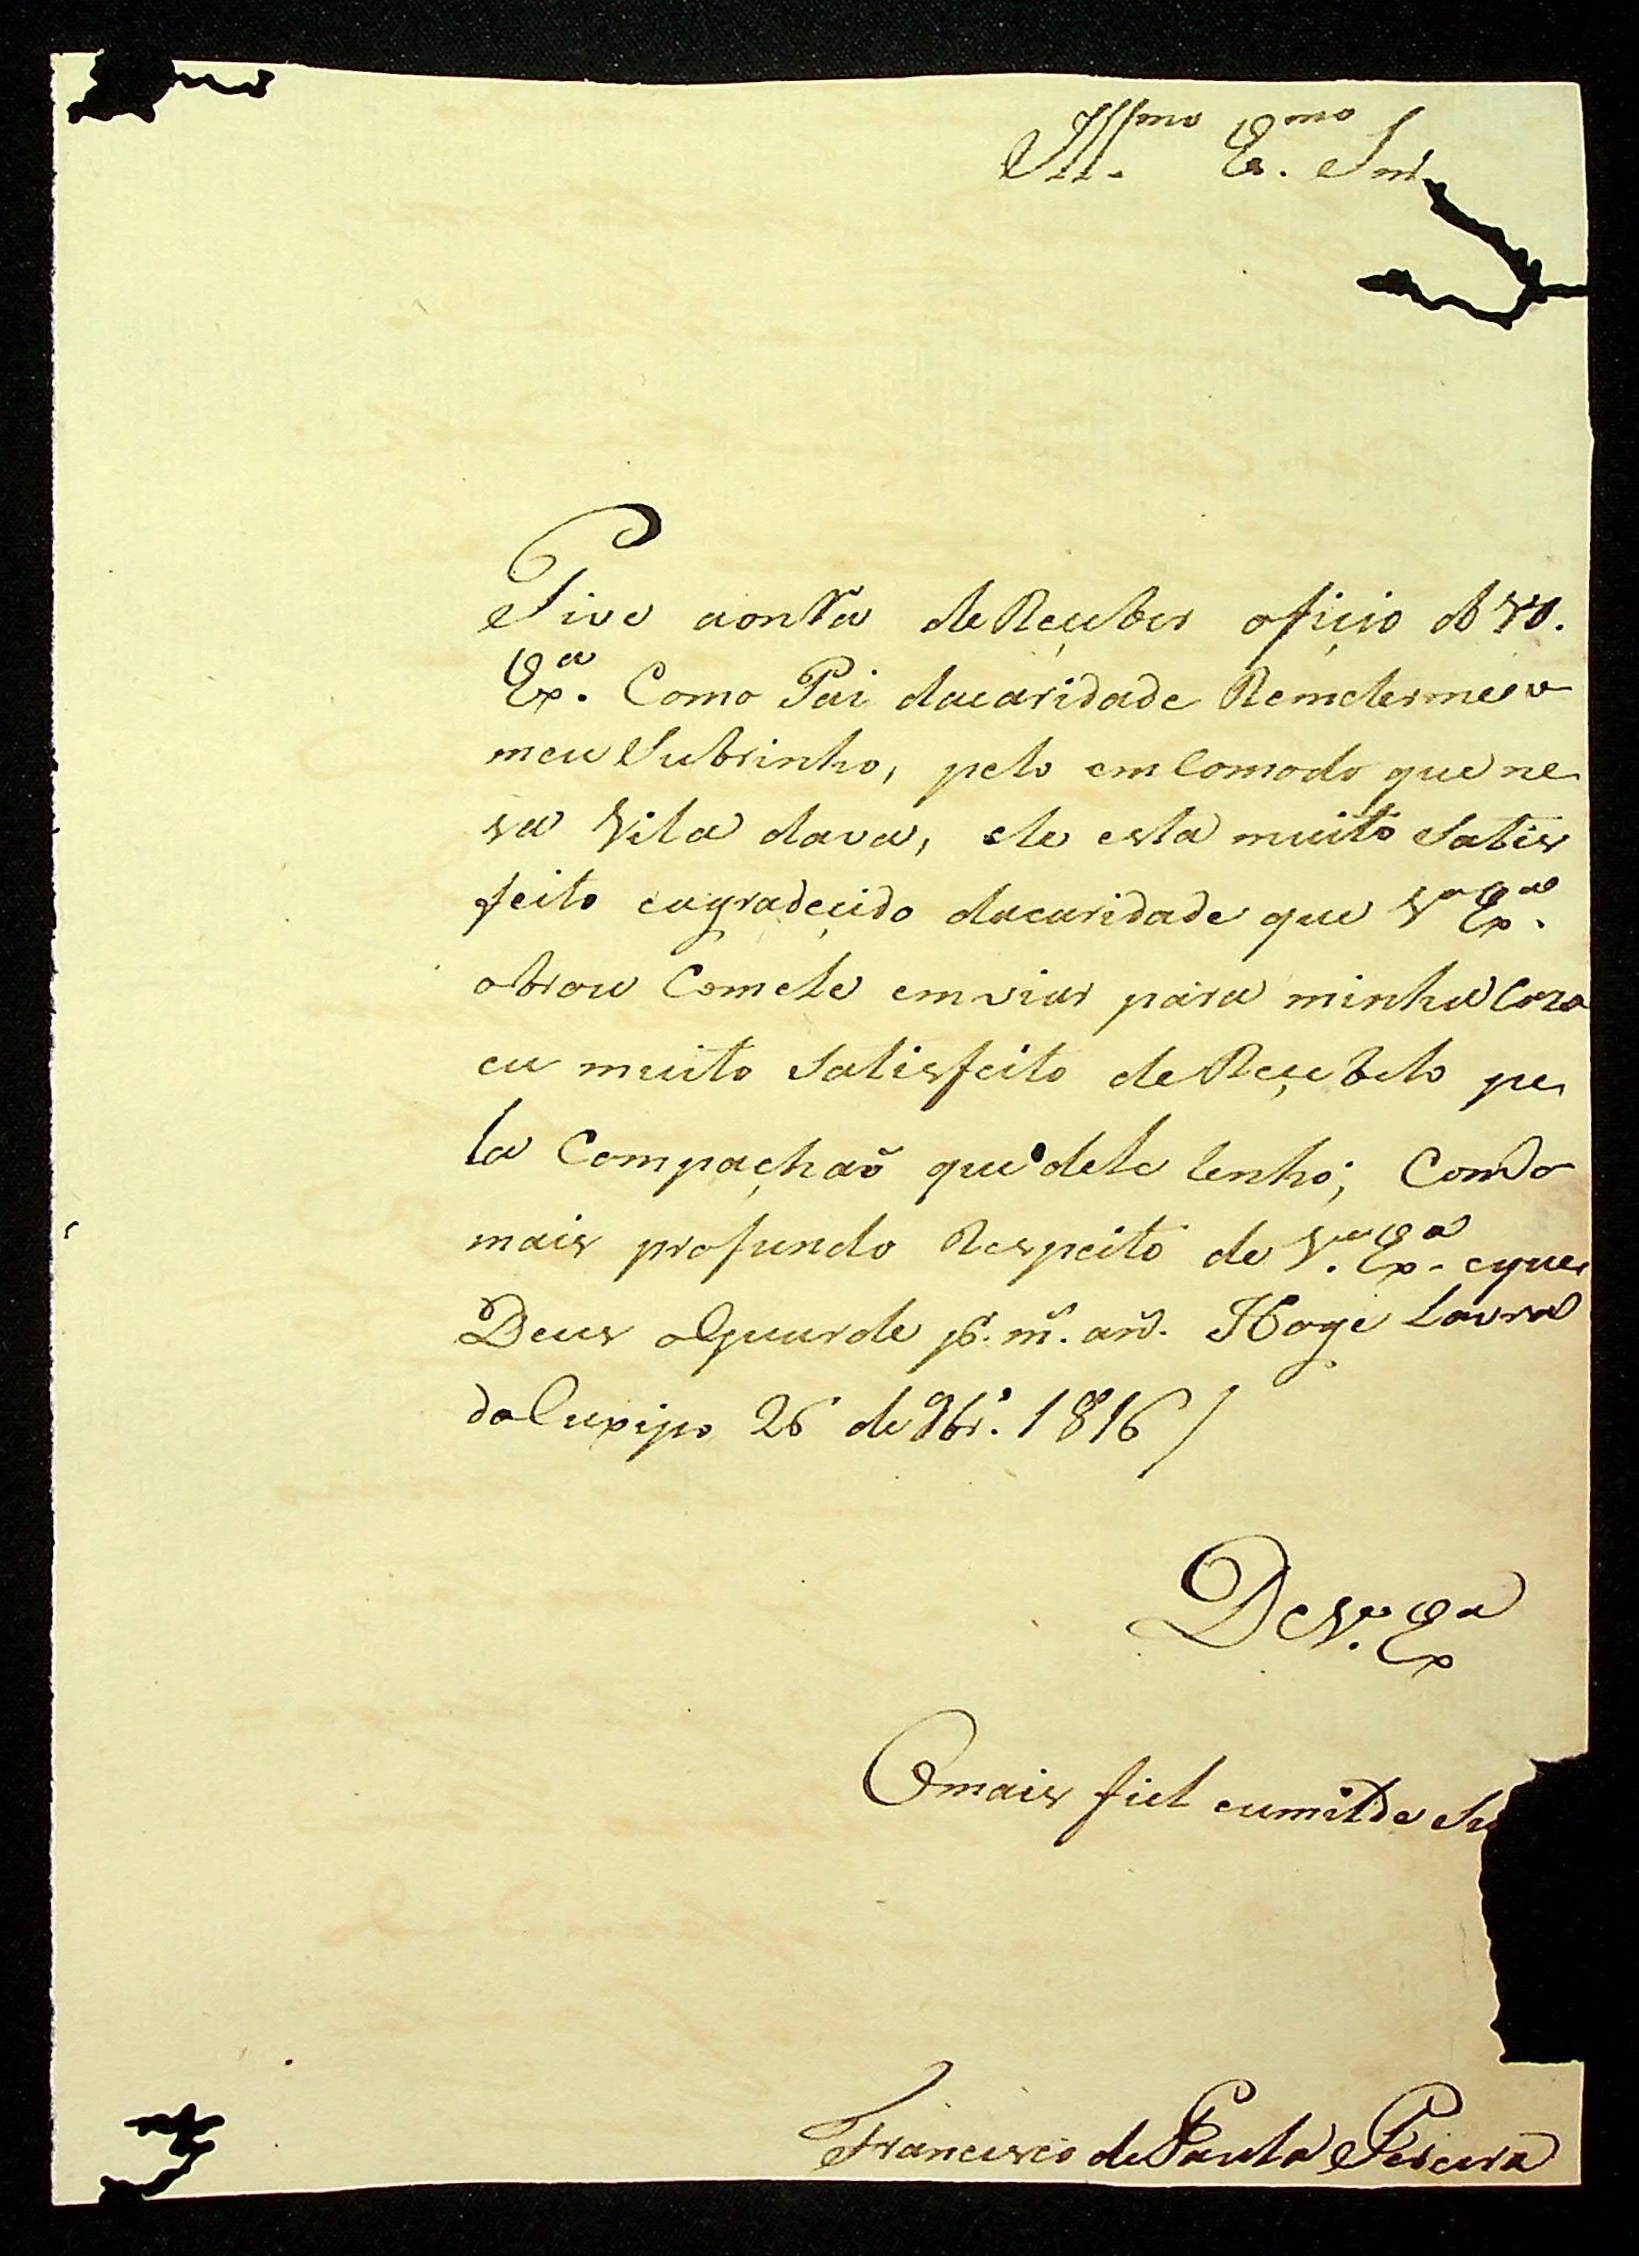 Ill.mo E.mo Snr.
Tive aonRa de Reçeber ofiçio de V.
Ex.a Como Pai dacaridade Remeterme o
meu Subrinho, pelo emComodo que ne
sa Vila dava, ele esta muito Satis
feito eagradeçido dacaridade que V.a Ex.a
obrou Comele emviar para minha Caza
eu muito Satisfeito de Reçebelo pe
la Compaçhaõ que dele tenho; Com o
mais profundo Respeito de V.a Ex.a eque
Deus oGuarde p.r m.s an.s Hoge Lavra
do Cuxipo 26 de 9br.o 1816 /
De V.a Ex.a
O mais fiel eumilde Su
Francisco de Paula Pereira